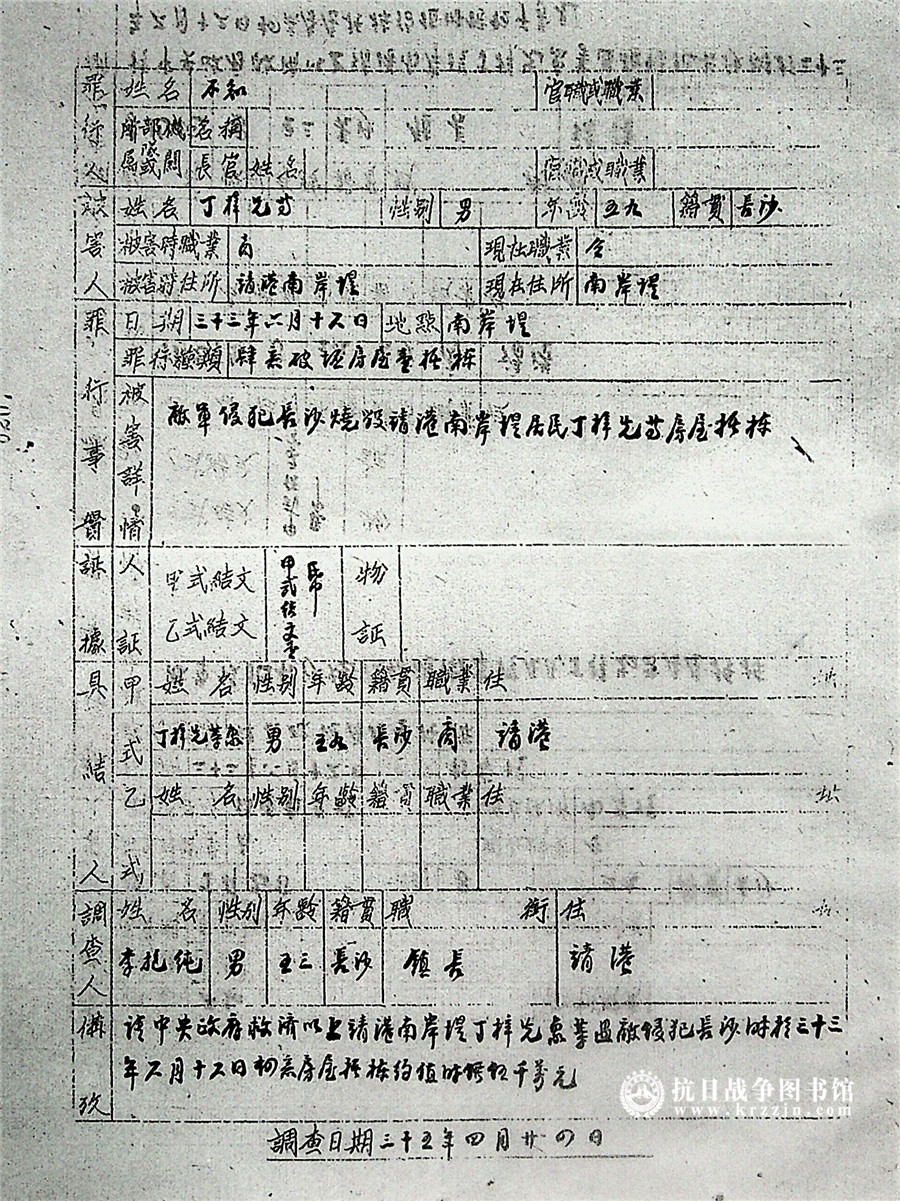 罪行人 姓名 不知 官職或職業
所屬部隊或機關 名稱
長官姓名 官職或職業
被害人 姓名 丁梓先 性别 男 年齡 五九 籍貫 長沙
被害時職業 商 現在職業 仝
被害時住所 靖港南岸堤 現在住所 南岸堤
罪行事實 日期 三十三年六月十六日 地點 南岸堤
罪行種類 肆意破坏房屋
被害詳情 敵軍侵犯長沙燒毀靖港南岸堤居民丁梓先 房屋 栋
証據 人証 甲式結文 甲式結文 物証
乙式結文
具結人 甲式 姓名 性别 年齡 籍貫 職業 住址
丁梓先 男 五九 長沙 商 靖港
乙式 姓名 性别 年齡 籍貫 職業 住址
調查人 姓名 性别 年齡 籍貫 職銜 住址
李 純 男 五三 長沙 鎮長 靖港
備攷 請中央政府救济以上靖港南岸堤丁梓先 遇敵侵犯長沙时於三十三
年六月十六日 房屋 栋约值 千萬元
調查日期三十五年四月廿四日
抗日战争图书馆
www.krzzjn.com